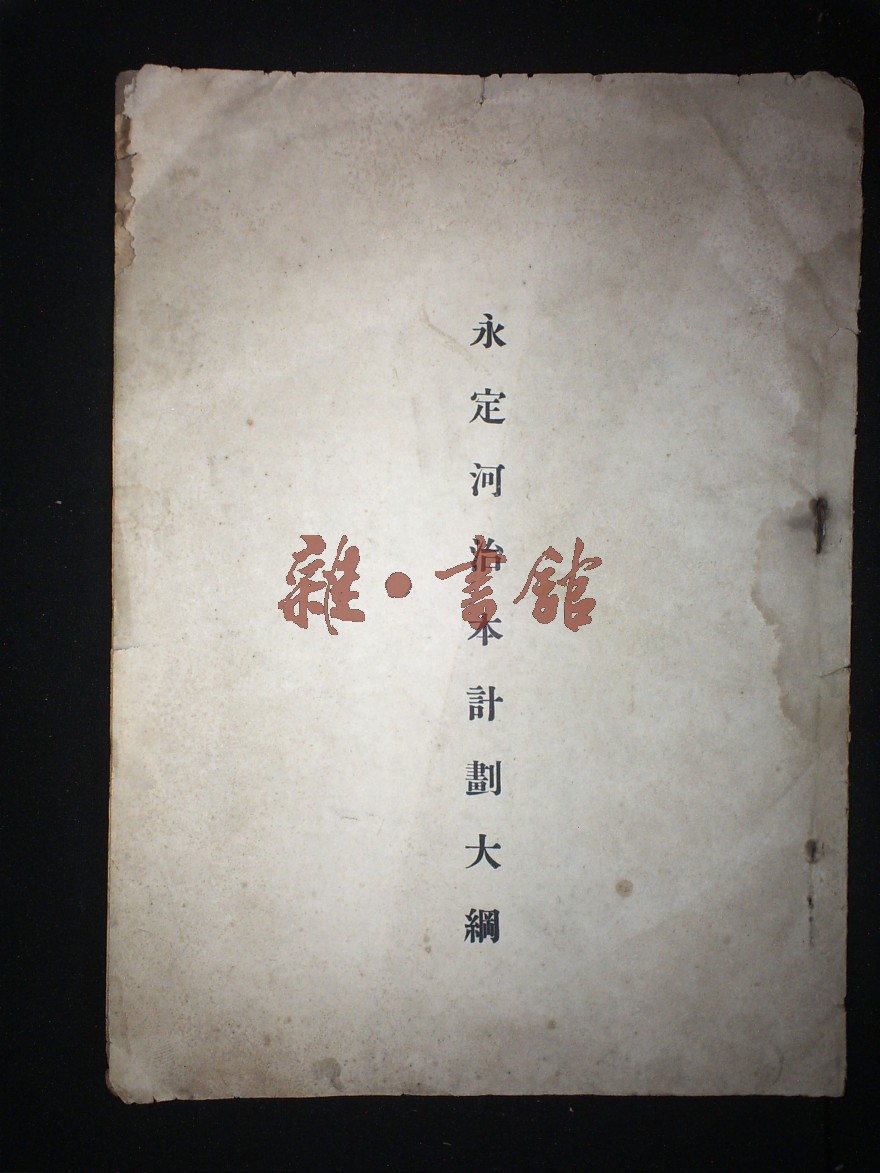 永定河治本計劃大綱
雜·書館